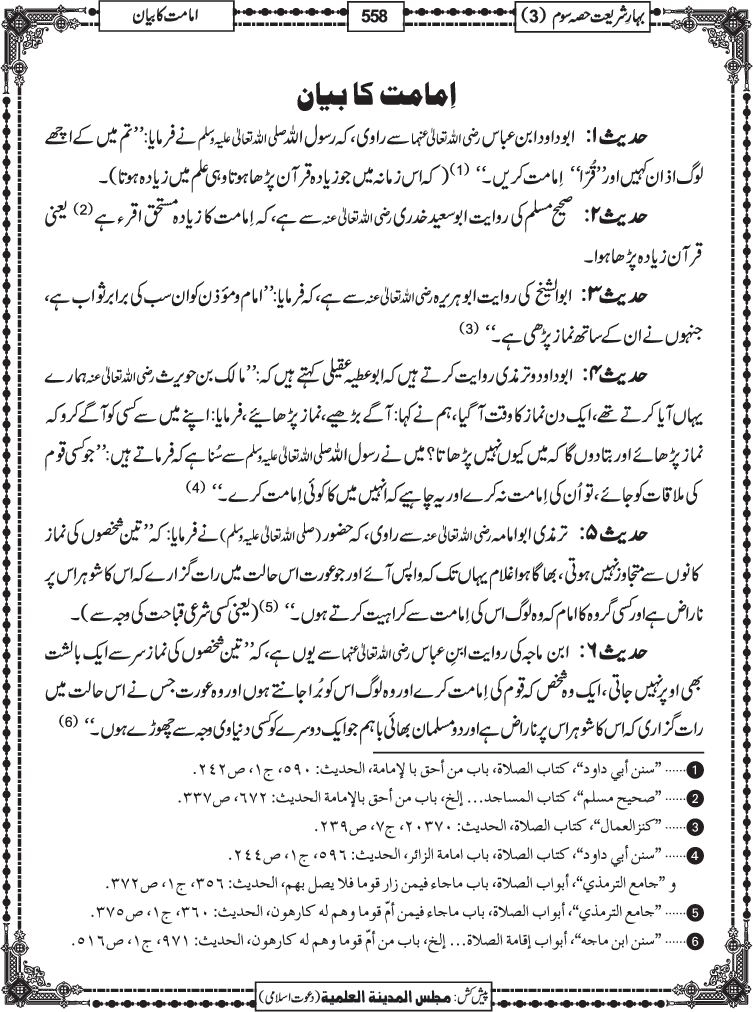 بہار شریعت حصہ سوم (3)
558
امامت کا بیان
اِمامت کا بیان
حدیث ۱: ابو داود ابن عباس رضی اللہ تعالیٰ عنہما سے راوی، کہ رسول اللہ صلی اللہ تعالیٰ علیہ وسلم نے فرمایا: ’’تم میں کے اچھے
لوگ اذان کہیں اور ’’قُرّا‘‘ اِمامت کریں۔‘‘ (1) (کہ اس زمانہ میں جو زیادہ قرآن پڑھا ہوتا وہی علم میں زیادہ ہوتا)۔
حدیث ۲: صحیح مسلم کی روایت ابو سعید خدری رضی اللہ تعالیٰ عنہ سے ہے، کہ اِمامت کا زیادہ مستحق اقرء ہے (2) یعنی
قرآن زیادہ پڑھا ہوا۔
حدیث ۳: ابو الشیخ کی روایت ابو ہریرہ رضی اللہ تعالیٰ عنہ سے ہے، کہ فرمایا: ’’امام و مؤذن کو ان سب کی برابر ثواب ہے،
جنہوں نے ان کے ساتھ نماز پڑھی ہے۔‘‘ (3)
حدیث ۴: ابو داود و ترمذی روایت کرتے ہیں کہ ابو عطیہ عقیلی کہتے ہیں کہ: ’’مالک بن حویرث رضی اللہ تعالیٰ عنہ ہمارے
یہاں آیا کرتے تھے، ایک دن نماز کا وقت آگیا، ہم نے کہا: آگے بڑھیے، نماز پڑھائیے، فرمایا: اپنے میں سے کسی کو آگے کرو کہ
نماز پڑھائے اور بتا دوں گا کہ میں کیوں نہیں پڑھاتا؟ میں نے رسول اللہ صلی اللہ تعالیٰ علیہ وسلم سے سُنا ہے کہ فرماتے ہیں: ’’جو کسی قوم
کی ملاقات کو جائے، تو اُن کی اِمامت نہ کرے اور یہ چاہیے کہ انہیں میں کا کوئی اِمامت کرے۔‘‘ (4)
حدیث ۵: ترمذی ابو امامہ رضی اللہ تعالیٰ عنہ سے راوی، کہ حضور (صلی اللہ تعالیٰ علیہ وسلم) نے فرمایا: کہ ’’تین شخصوں کی نماز
کانوں سے متجاوز نہیں ہوتی، بھاگا ہوا غلام یہاں تک کہ واپس آئے اور جو عورت اس حالت میں رات گزارے کہ اس کا شوہر اس پر
ناراض ہے اور کسی گروہ کا امام کہ وہ لوگ اس کی اِمامت سے کراہیت کرتے ہوں۔‘‘ (5) (یعنی کسی شرعی قباحت کی وجہ سے)۔
حدیث ۶: ابن ماجہ کی روایت ابنِ عباس رضی اللہ تعالیٰ عنہما سے یوں ہے، کہ ’’تین شخصوں کی نماز سر سے ایک بالشت
بھی اوپر نہیں جاتی، ایک وہ شخص کہ قوم کی اِمامت کرے اور وہ لوگ اس کو بُرا جانتے ہوں اور وہ عورت جس نے اس حالت میں
رات گزاری کہ اس کا شوہر اس پر ناراض ہے اور دو مسلمان بھائی باہم جو ایک دوسرے کو کسی دنیاوی وجہ سے چھوڑے ہوں۔‘‘ (6)
1 ...... ”سنن أبي داود“، كتاب الصلاة، باب من أحق بالإمامة، الحديث: ٥٩٠، ج١، ص٢٤٢.
2 ...... ”صحيح مسلم“، كتاب المساجد... إلخ، باب من أحق بالإمامة الحديث: ٦٧٢، ص٣٣٧.
3 ...... ”كنزالعمال“، كتاب الصلاة، الحديث: ٢٠٣٧٠، ج٧، ص٢٣٩.
4 ...... ”سنن أبي داود“، كتاب الصلاة، باب امامة الزائر، الحديث: ٥٩٦، ج١، ص٢٤٤.
و ”جامع الترمذي“، أبواب الصلاة، باب ماجاء فيمن زار قوما فلا يصل بهم، الحديث: ٣٥٦، ج١، ص٣٧٢.
5 ...... ”جامع الترمذي“، أبواب الصلاة، باب ماجاء فيمن أمّ قوما وهم له كارهون، الحديث: ٣٦٠، ج١، ص٣٧٥.
6 ...... ”سنن ابن ماجه“، أبواب إقامة الصلاة... إلخ، باب من أمّ قوما وهم له كارهون، الحديث: ٩٧١، ج١، ص٥١٦.
پیش کش: مجلس المدينة العلمية (دعوت اسلامی)